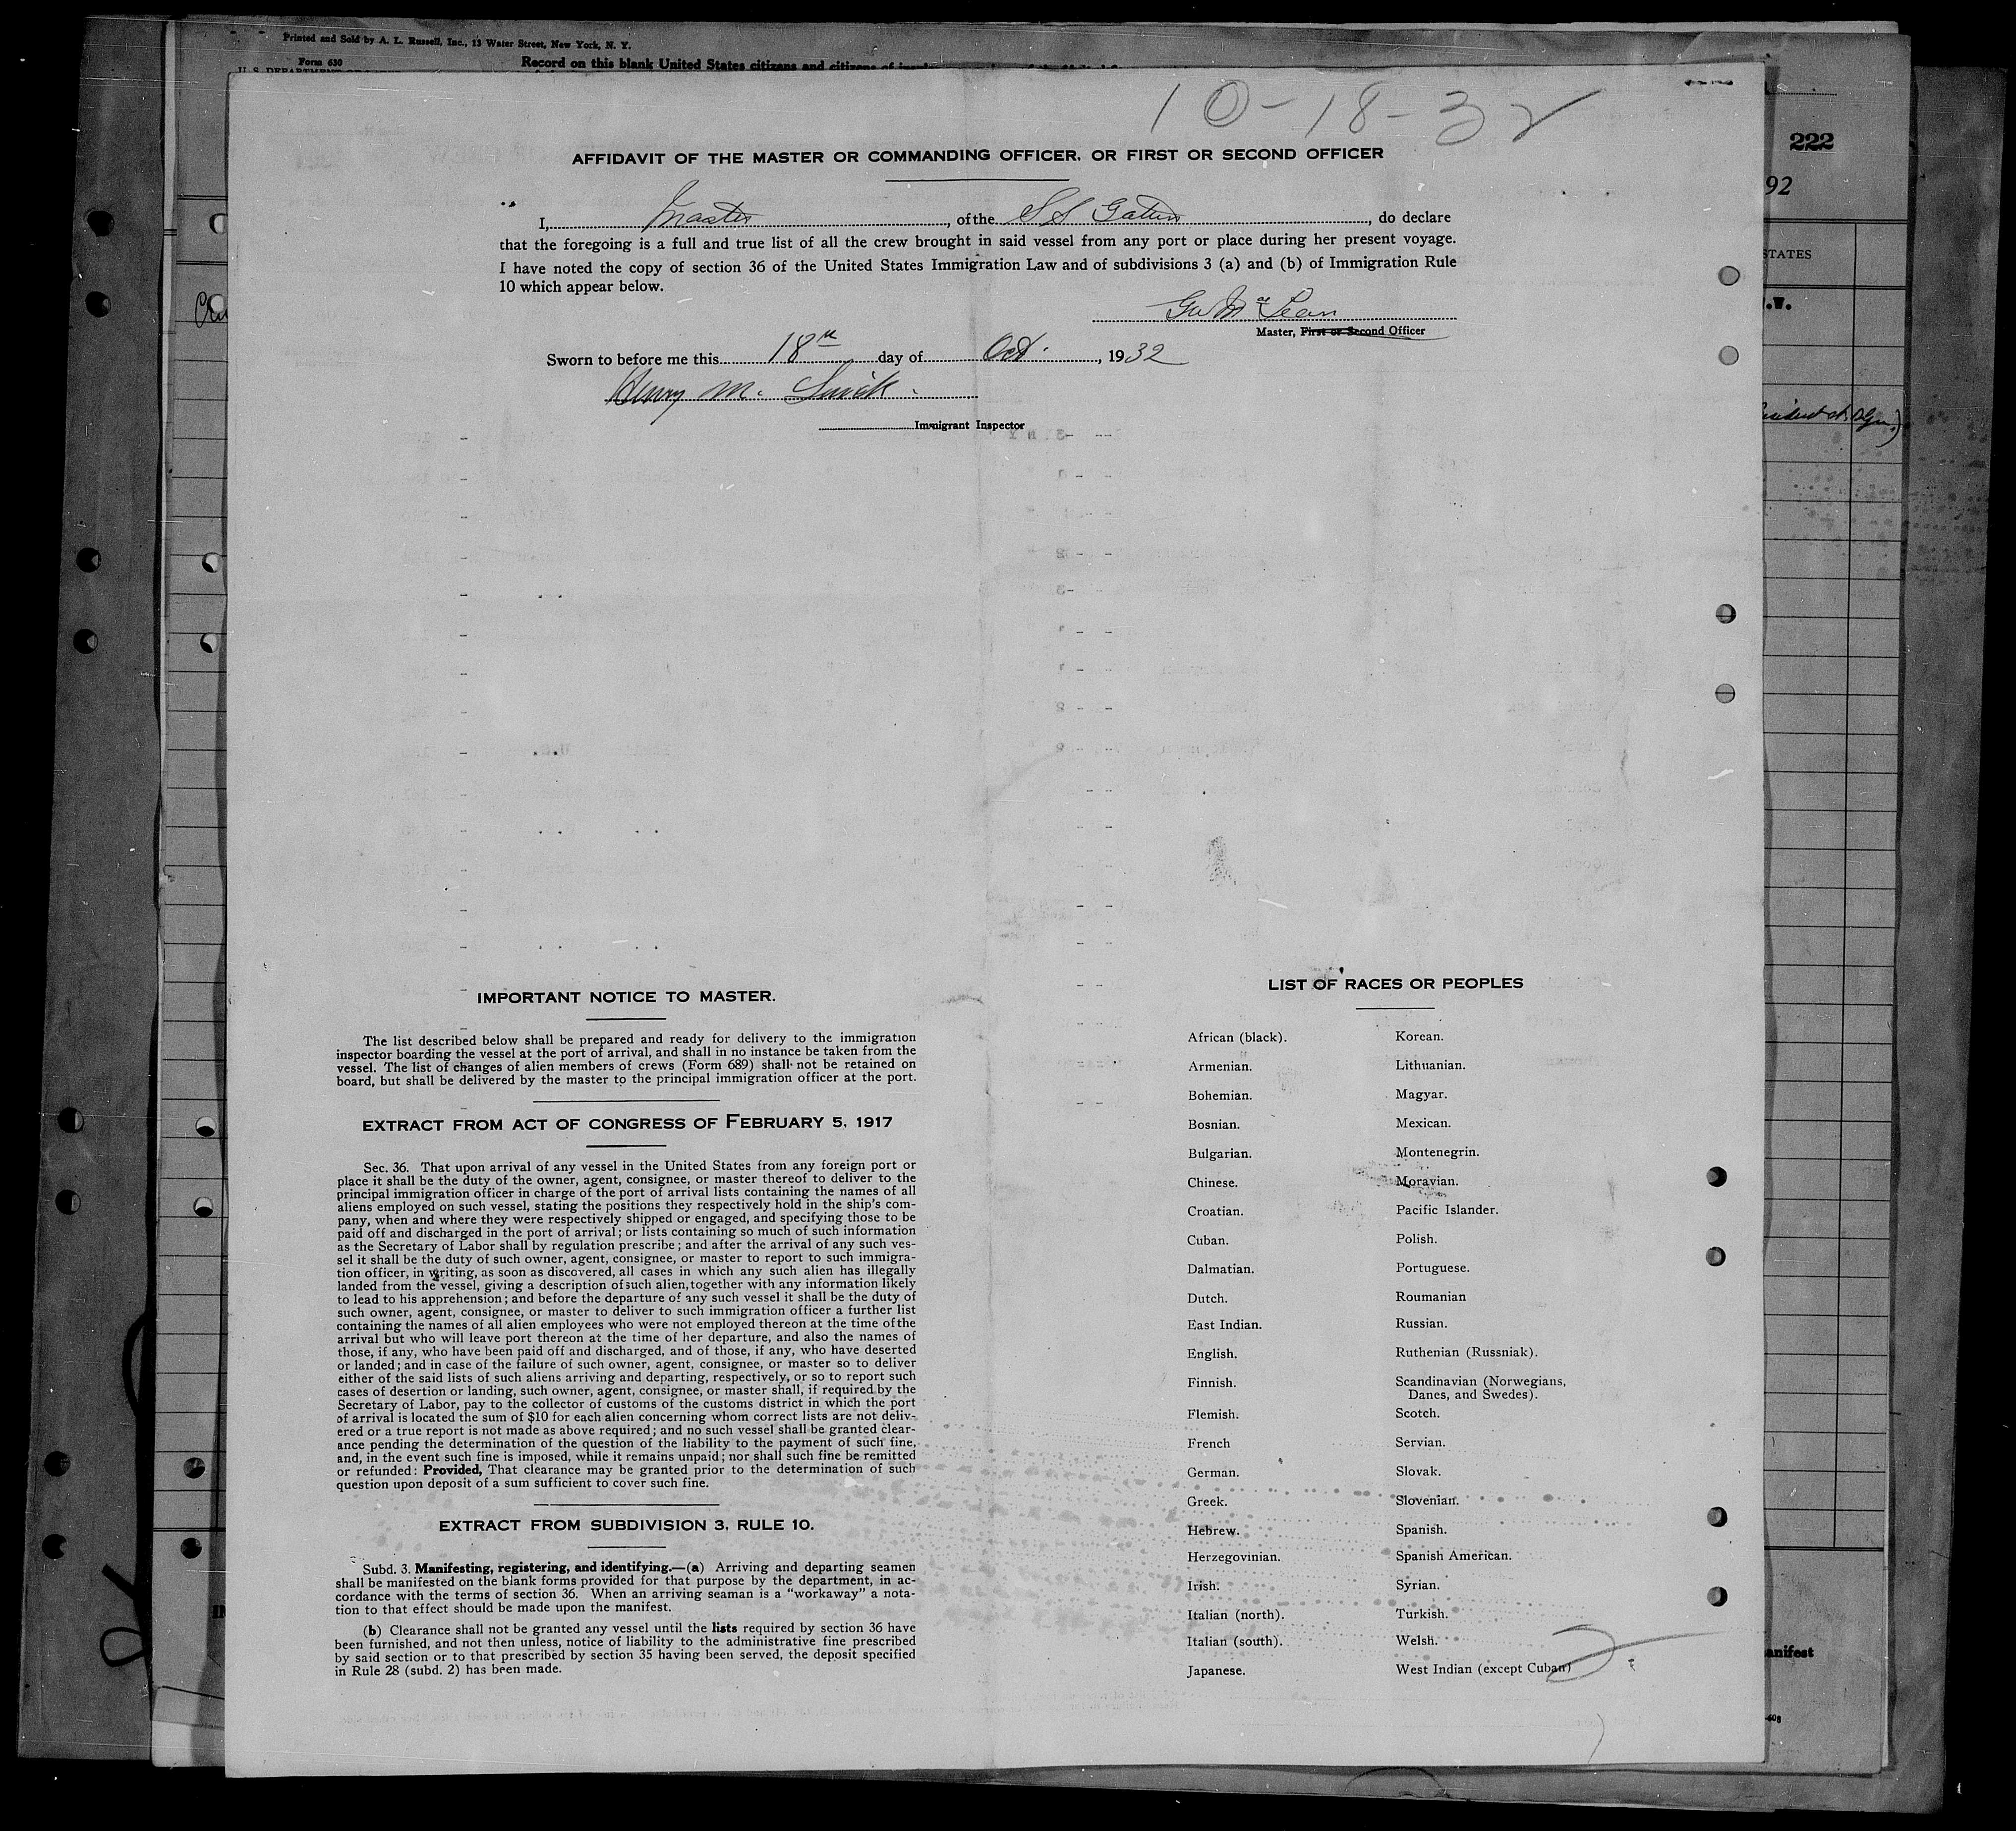 Printed and Sold by A. L. Russell, Inc., 13 Water Street, New York, N. Y.
Form 630
Record on this blank United States citizens and citizens of
10-18-32
222
92
STATES
.W.
AFFIDAVIT OF THE MASTER OR COMMANDING OFFICER, OR FIRST OR SECOND OFFICER
I, Master, of the S S Gatun, do declare
that the foregoing is a full and true list of all the crew brought in said vessel from any port or place during her present voyage.
I have noted the copy of section 36 of the United States Immigration Law and of subdivisions 3 (a) and (b) of Immigration Rule
10 which appear below.
Master, First or Second Officer
Sworn to before me this 18th day of Oct., 1932
Henry M.
Immigrant Inspector
IMPORTANT NOTICE TO MASTER.
The list described below shall be prepared and ready for delivery to the immigration
inspector boarding the vessel at the port of arrival, and shall in no instance be taken from the
vessel. The list of changes of alien members of crews (Form 689) shall not be retained on
board, but shall be delivered by the master to the principal immigration officer at the port.
EXTRACT FROM ACT OF CONGRESS OF FEBRUARY 5, 1917
Sec. 36. That upon arrival of any vessel in the United States from any foreign port or
place it shall be the duty of the owner, agent, consignee, or master thereof to deliver to the
principal immigration officer in charge of the port of arrival lists containing the names of all
aliens employed on such vessel, stating the positions they respectively hold in the ship's com-
pany, when and where they were respectively shipped or engaged, and specifying those to be
paid off and discharged in the port of arrival; or lists containing so much of such information
as the Secretary of Labor shall by regulation prescribe; and after the arrival of any such ves-
sel it shall be the duty of such owner, agent, consignee, or master to report to such immigra-
tion officer, in writing, as soon as discovered, all cases in which any such alien has illegally
landed from the vessel, giving a description of such alien, together with any information likely
to lead to his apprehension; and before the departure of any such vessel it shall be the duty of
such owner, agent, consignee, or master to deliver to such immigration officer a further list
containing the names of all alien employees who were not employed thereon at the time of the
arrival but who will leave port thereon at the time of her departure, and also the names of
those, if any, who have been paid off and discharged, and of those, if any, who have deserted
or landed; and in case of the failure of such owner, agent, consignee, or master so to deliver
either of the said lists of such aliens arriving and departing, respectively, or so to report such
cases of desertion or landing, such owner, agent, consignee, or master shall, if required by the
Secretary of Labor, pay to the collector of customs of the customs district in which the port
of arrival is located the sum of $10 for each alien concerning whom correct lists are not deliv-
ered or a true report is not made as above required; and no such vessel shall be granted clear-
ance pending the determination of the question of the liability to the payment of such fine,
and, in the event such fine is imposed, while it remains unpaid; nor shall such fine be remitted
or refunded: Provided, That clearance may be granted prior to the determination of such
question upon deposit of a sum sufficient to cover such fine.
EXTRACT FROM SUBDIVISION 3, RULE 10.
Subd. 3. Manifesting, registering, and identifying.—(a) Arriving and departing seamen
shall be manifested on the blank forms provided for that purpose by the department, in ac-
cordance with the terms of section 36. When an arriving seaman is a “workaway” a nota-
tion to that effect should be made upon the manifest.
(b) Clearance shall not be granted any vessel until the lists required by section 36 have
been furnished, and not then unless, notice of liability to the administrative fine prescribed
by said section or to that prescribed by section 35 having been served, the deposit specified
in Rule 28 (subd. 2) has been made.
LIST OF RACES OR PEOPLES
African (black).
Armenian.
Bohemian.
Bosnian.
Bulgarian.
Chinese.
Croatian.
Cuban.
Dalmatian.
Dutch.
East Indian.
English.
Finnish.
Flemish.
French
German.
Greek.
Hebrew.
Herzegovinian.
Irish.
Italian (north).
Italian (south).
Japanese.
Korean.
Lithuanian.
Magyar.
Mexican.
Montenegrin.
Moravian.
Pacific Islander.
Polish.
Portuguese.
Roumanian
Russian.
Ruthenian (Russniak).
Scandinavian (Norwegians,
Danes, and Swedes).
Scotch.
Servian.
Slovak.
Slovenian.
Spanish.
Spanish American.
Syrian.
Turkish.
Welsh.
West Indian (except Cuban)
anifest